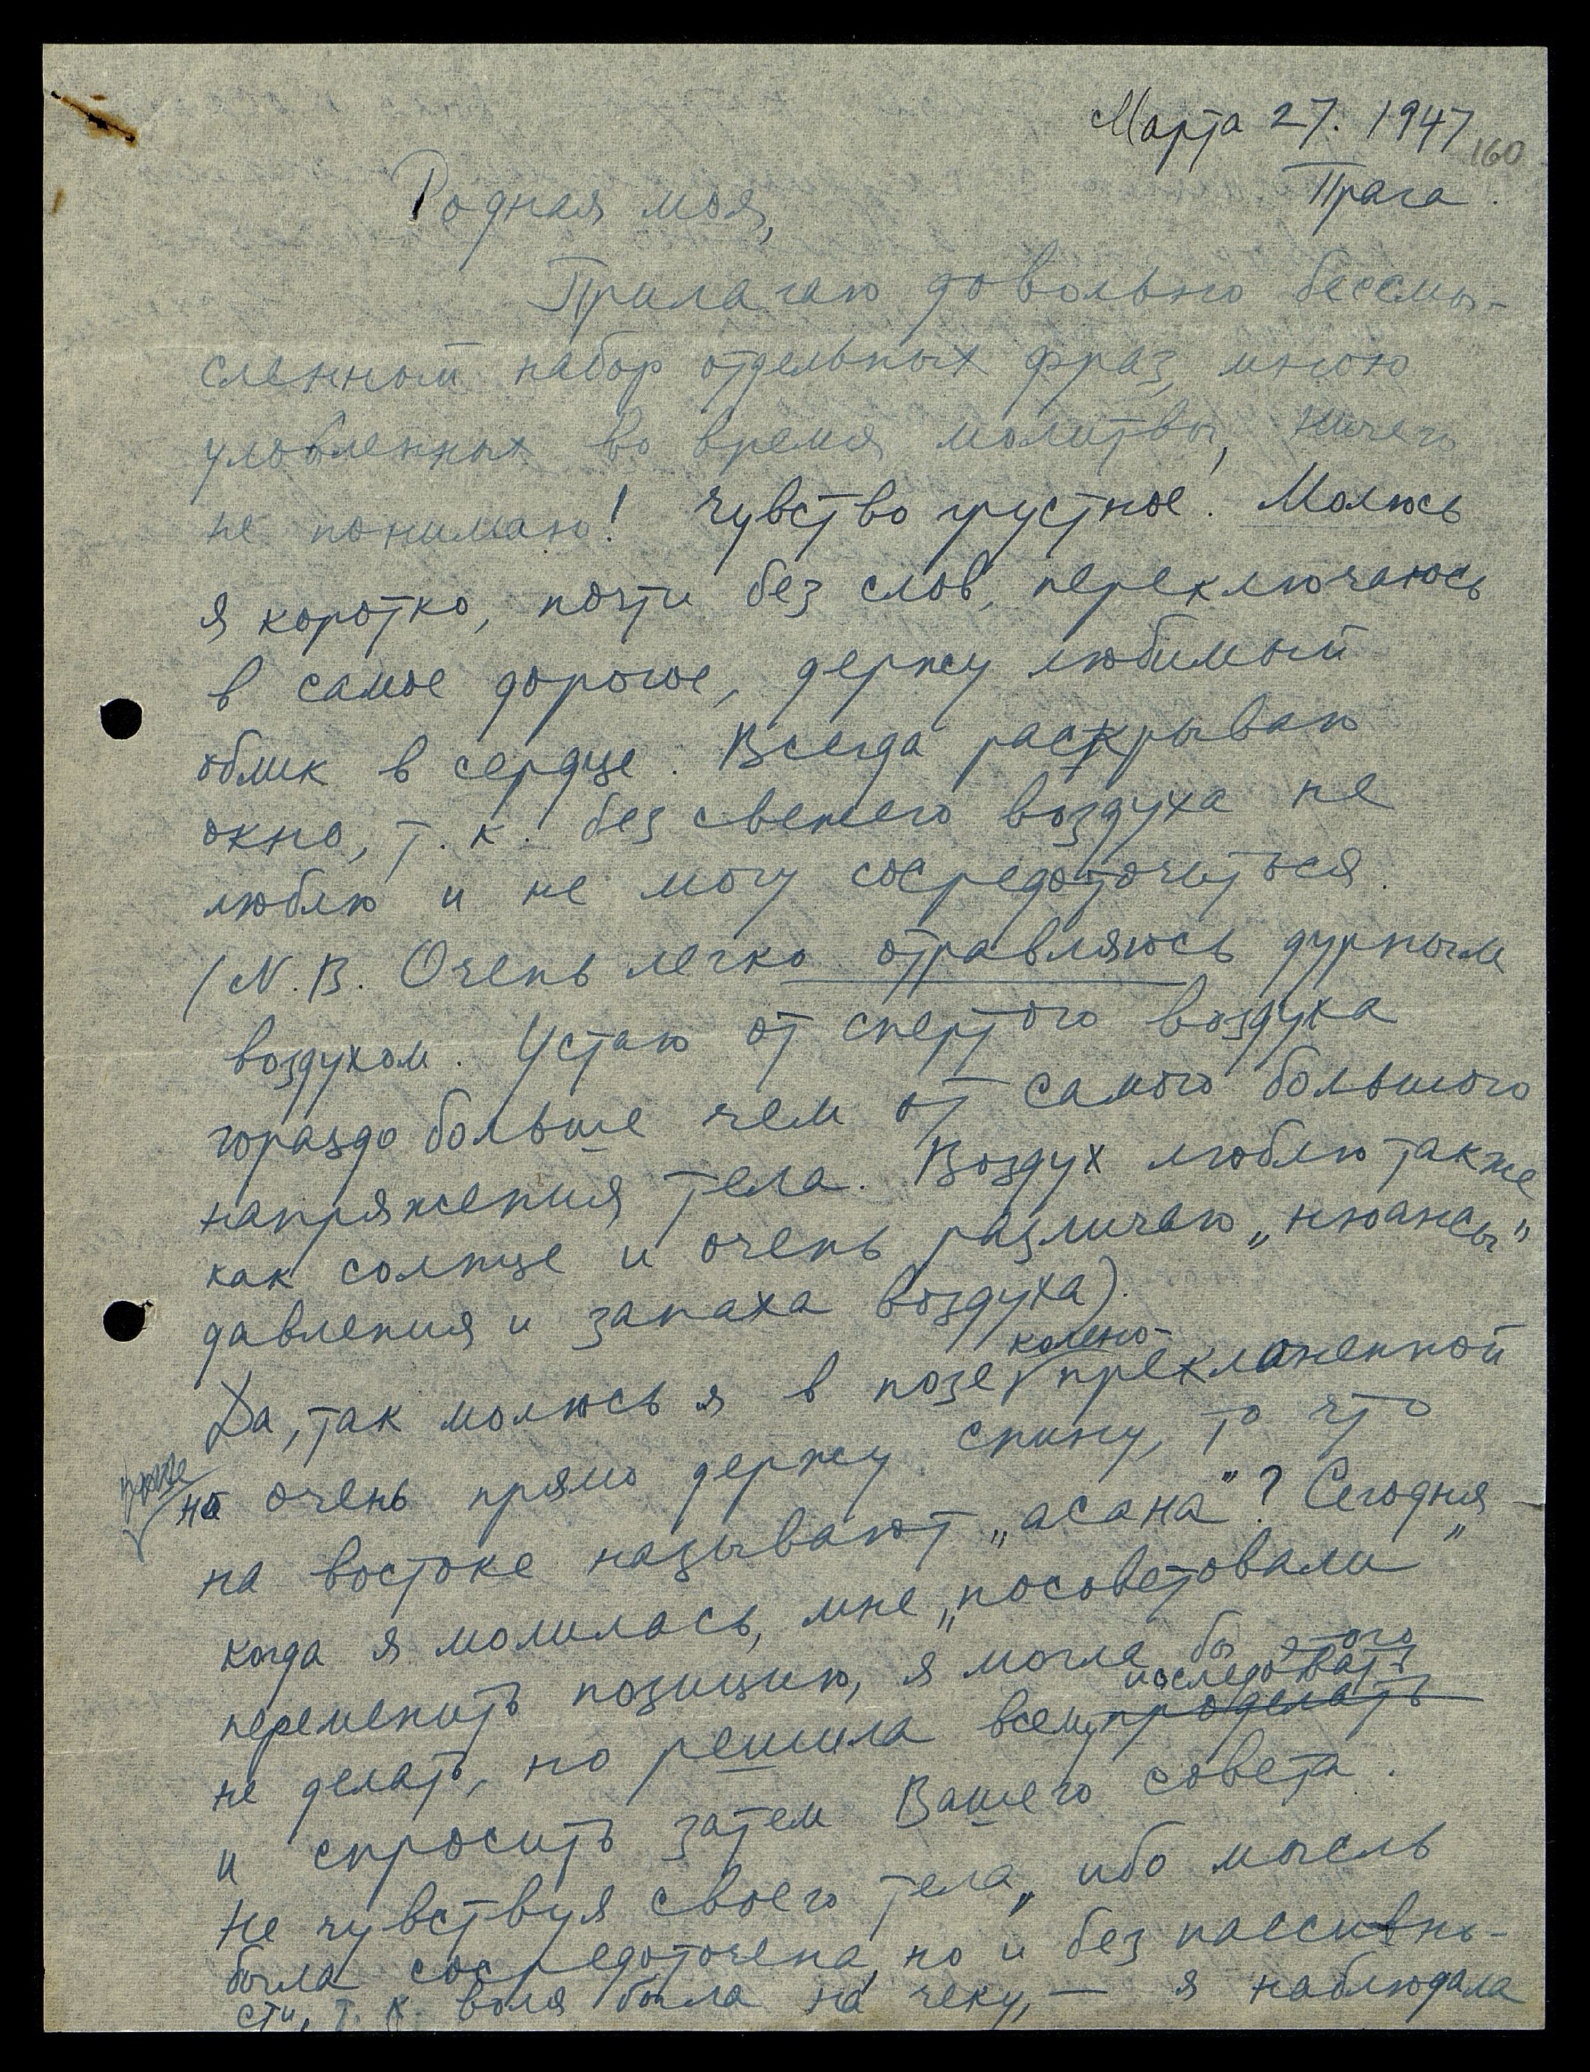 Марта 27. 1947
160
Прага.
Родная моя,
Прилагаю довольно бессмы-
сленный набор отдельных фраз, мною
уловленных во время молитвы, ничего
не понимаю! Чувство грустное. Молюсь
я коротко, почти без слов, переключаюсь
в самое дорогое, держу любимый
облик в сердце. Всегда раскрываю
окно, т. к. без свежего воздуха не
люблю и не могу сосредоточиться.
(N.B. Очень легко отравляюсь дурным
воздухом. Устаю от спертого воздуха
гораздо больше чем от самого большого
напряжения тела. Воздух люблю также
как солнце и очень различаю „нюансы"
давления и запаха воздуха).
колено-
Да, так молюсь я в позе преклоненной
но очень прямо держу спину, то что
на востоке называют „асана"? Сегодня
когда я молилась, мне „посоветовали"
переменить позицию, я могла бы этого
последовать
не делать, но решила всему проделать
и спросить затем Вашего совета.
Не чувствуя своего тела, ибо мысль
была сосредоточена, но и без пассивно-
сти, т. к. воля была на чеку, — я наблюдала